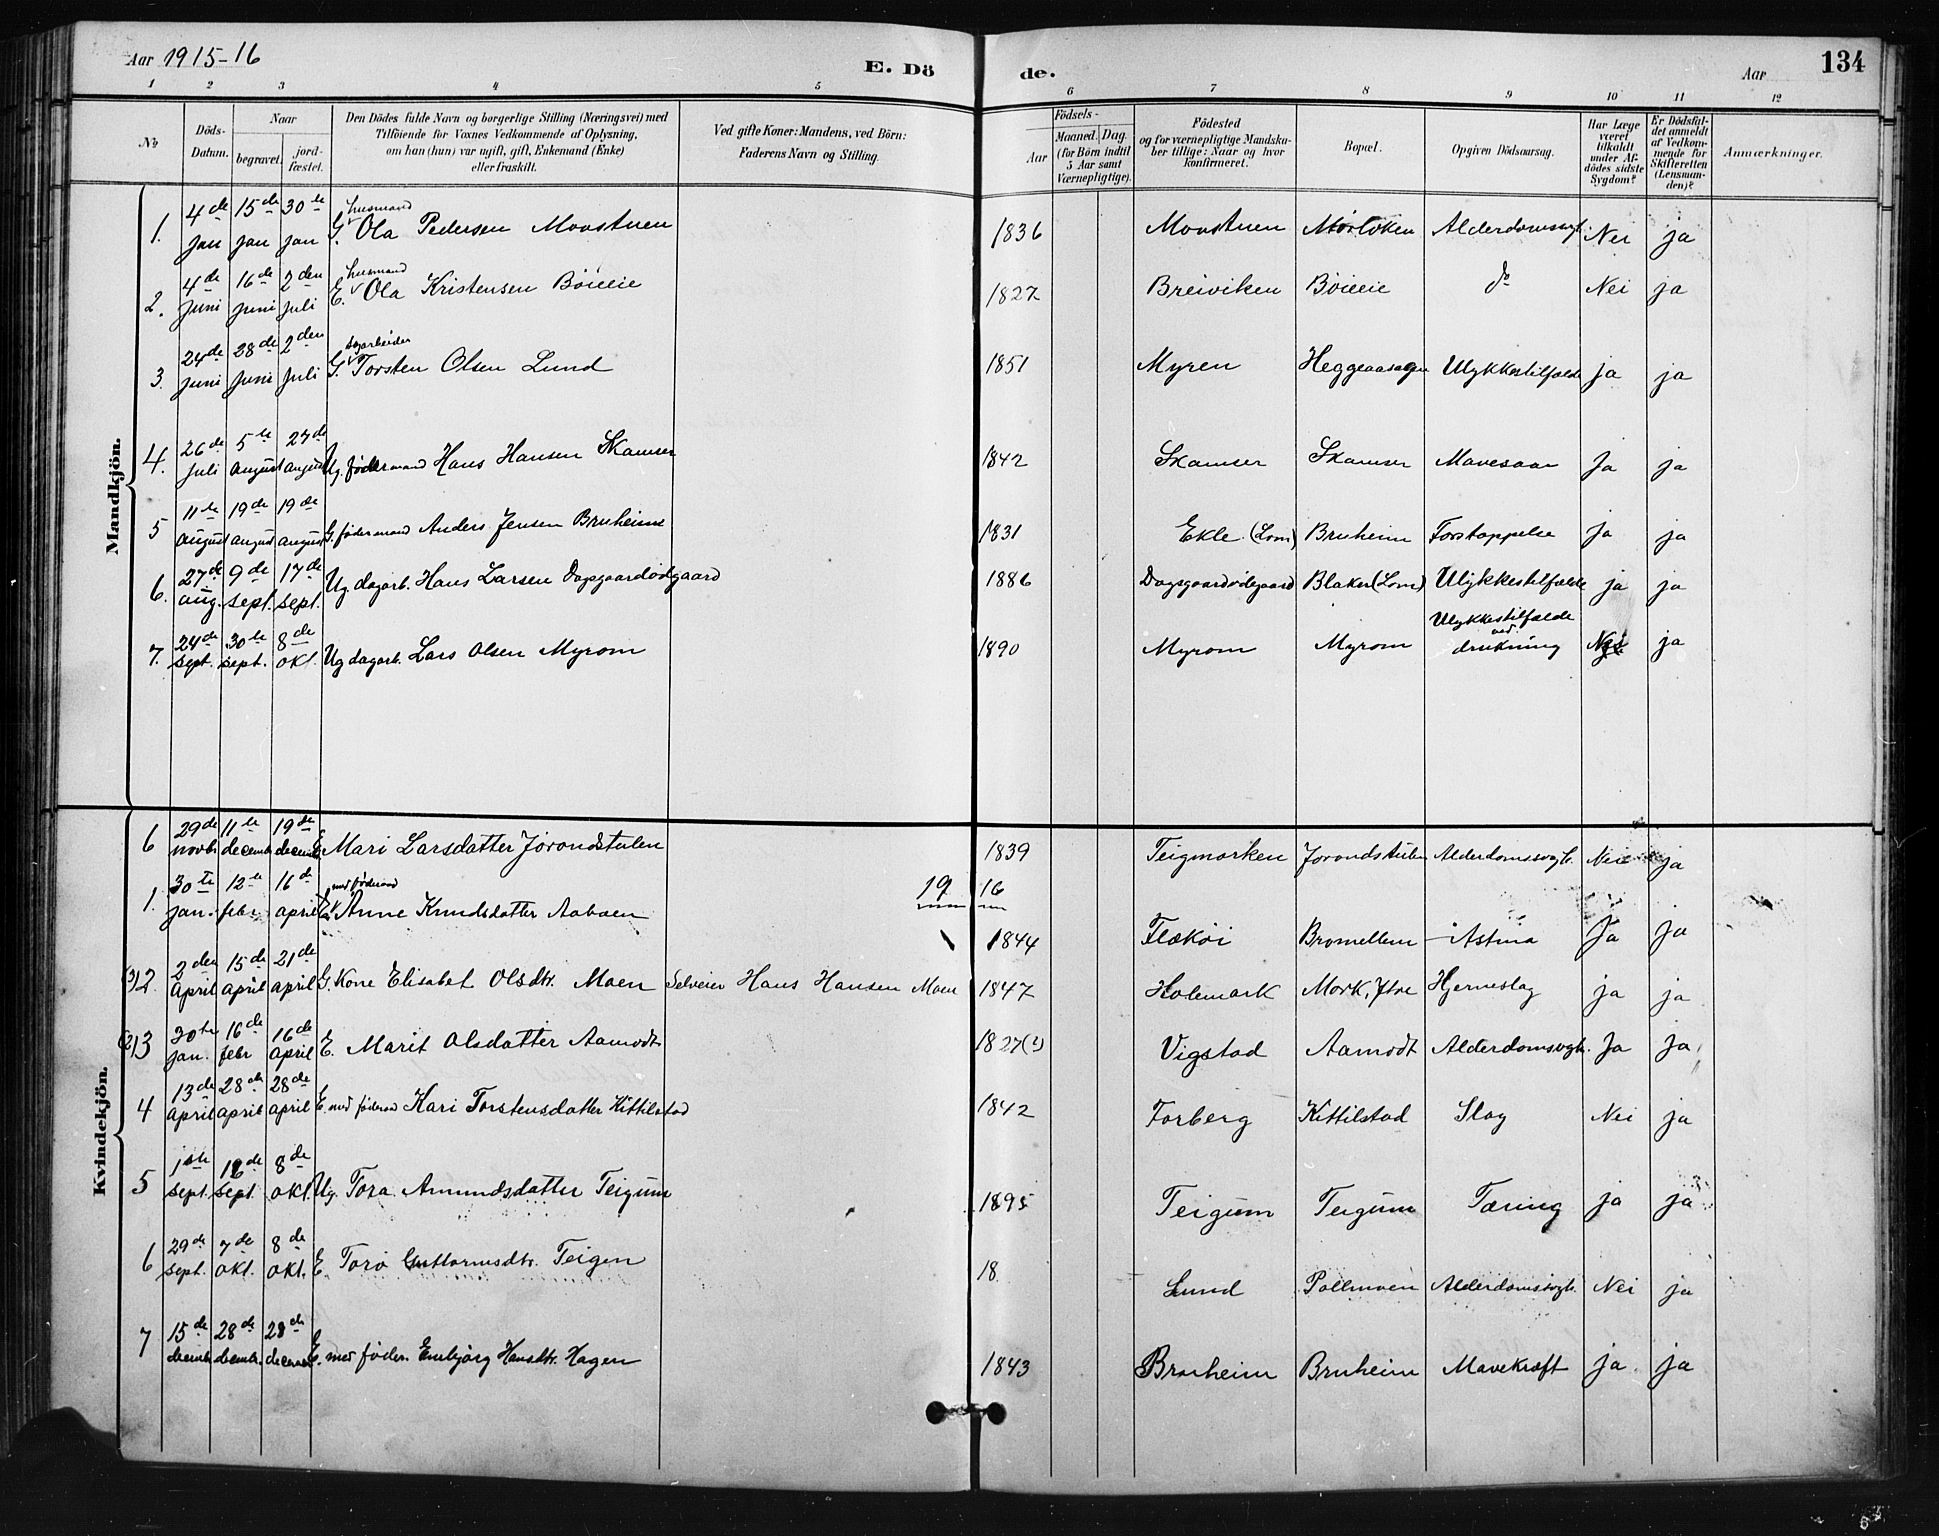 Aar 1915-16
E. Dö de.
Aar 134
1 2 3 4 5 6 7 8 9 10 11 12
No
Döds-Datum.
Naar
begravet.
jord-fæstet.
Den Dödes fulde Navn og borgerlige Stilling (Næringsvei) med
Tilföiende for Voxnes Vedkommende af Oplysning,
om han (hun) var ugift, gift, Enkemand (Enke)
eller fraskilt.
Ved gifte Koner: Mandens, ved Börn:
Faderens Navn og Stilling.
Födsels-
Aar
Maaned. Dag.
(for Börn indtil
5 Aar samt
Værnepligtige).
Födested
og for værnepligtige Mandska-
ber tillige: Naar og hvor
konfirmeret.
Bopæl.
Opgiven Dödsaarsag.
Har Læge
været
tilkaldt
under Af-
dödes sidste
Sygdom?
Er Dödsfal-
det anmeldt
af Vedkom-
mende for
Skifteretten
(Lensman-
den)?
Anmærkninger.
Mandkjön.
1. 4de jan 15de jan 30te jan G. husmand Ola Pedersen Moastuen 1836 Moastuen Mørløken Alderdomssvgt. Nei ja
2. 4de juni 16de juni 2den juli E. husmand Ola Kristensen Böieeie 1827 Breiviken Böieeie do Nei ja
3. 24de juni 28de juni 2den juli G. sagarbeider Torsten Olsen Lund 1851 Myren Heggeaasagen Ulykkestilfælde ja ja
4. 26de juli 5te august 27de august Ug. föderaad Hans Hansen Skamser 1842 Skamser Skamser Mavesaar Ja ja
5 11te august 19de august 19de august G. föderaad Anders Jensen Bruheim 1831 Ekle (Lom) Bruheim Forstoppelse Ja ja
6. 27de aug. 9de sept. 17de sept. Ug. dagarb. Hans Larsen Dagsgaardödegaard 1886 Dagsgaardödegaard Blaker (Lom) Ulykkestilfælde ja ja
7. 24de sept. 30te sept. 8de okt. Ug dagarb. Lars Olsen Myrom 1890 Myrom Myrom Ulykkestilfælde ved drukning Nei ja
Kvindekjön.
6 29de novbr 11te decembr 19de decembr E. Mari Larsdatter Jorondstulen 1839 Teigmorken Jorondstulen Alderdomssvgh. Nei ja
19 16
1. 30te jan. 12te febr 16de april E. med föderaad Anne Knudsdatter Aaboen 1844 Flækøi Bromellem Astma Ja ja
(3) 2. 2den april 15de april 21de april G. Kone Elisabet Olsdtr. Moen Selveier Hans Hansen Moen 1847 Holemark Mork, Hjerneslag ja ja
(2) 3 30te jan. 16de febr 16de april E. Marit Olsdatter Aamodt 1827(?) Vigstad Aamodt Alderdomssvgh. Ja ja
4 13de april 28de april 28de april E. med föderaad Kari Torstensdatter Kittilstad 1842 Forberg Kittilstad Slag Nei ja
5 1ste sept. 16de sept. 8de okt. Ug. Tora Amundsdatter Teigum 1895 Teigum Teigum Tæring ja ja
6 29de sept. 7de okt. 8de okt. E. Toro Guttormsdtr. Teigen 18 Lund Pollmoen Alderdomssvgh. Nei ja
7 15de decembr 28de decembr. 28de decembr E. med föder. Embjørg Hansdtr. Hagen 1843 Bruheim Bruheim Mavekræft ja ja